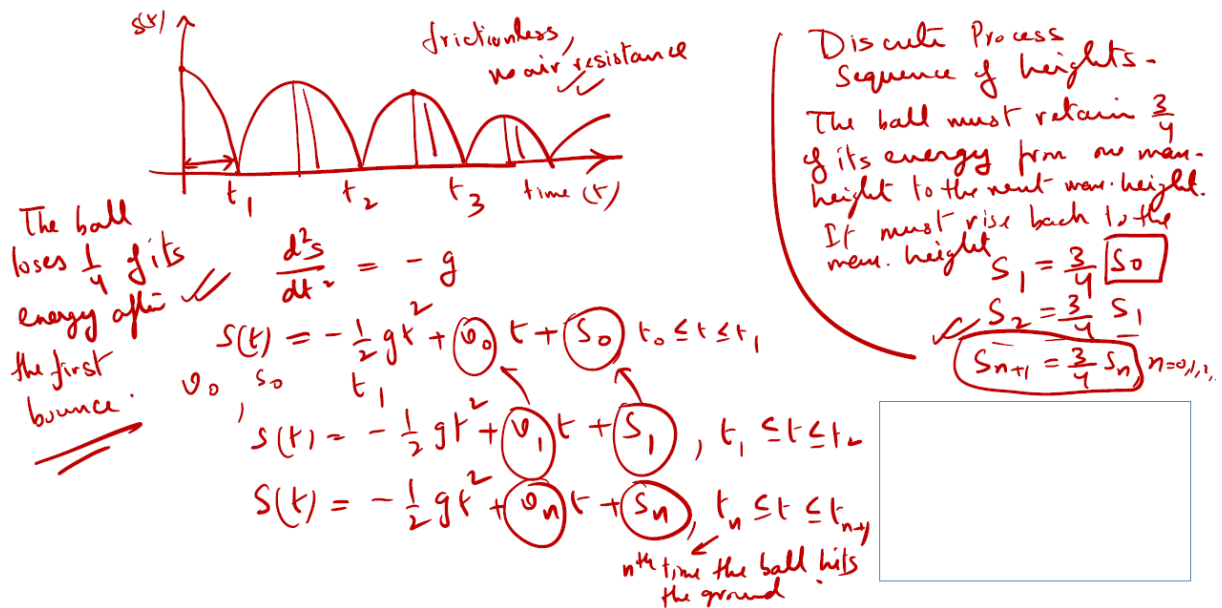 s(t)
frictionless,
no air resistance
t₁ t₂ t₃ time (t)
The ball
loses 1/4 of its
energy after
the first
bounce.
d²s/dt² = - g
s(t) = - 1/2 gt² + v₀ t + s₀ t₀ ≤ t ≤ t₁
v₀, s₀ t₁
s(t) = - 1/2 gt² + v₁ t + s₁, t₁ ≤ t ≤ t₂
s(t) = - 1/2 gt² + vₙ t + sₙ, tₙ ≤ t ≤ tₙ₊₁
nth time the ball hits
the ground.
Discrete Process
Sequence of heights.
The ball must retain 3/4
of its energy from one max.
height to the next max. height.
It must rise back to the
max. height
S₁ = 3/4 S₀
S₂ = 3/4 S₁
Sₙ₊₁ = 3/4 Sₙ, n=0,1,2,